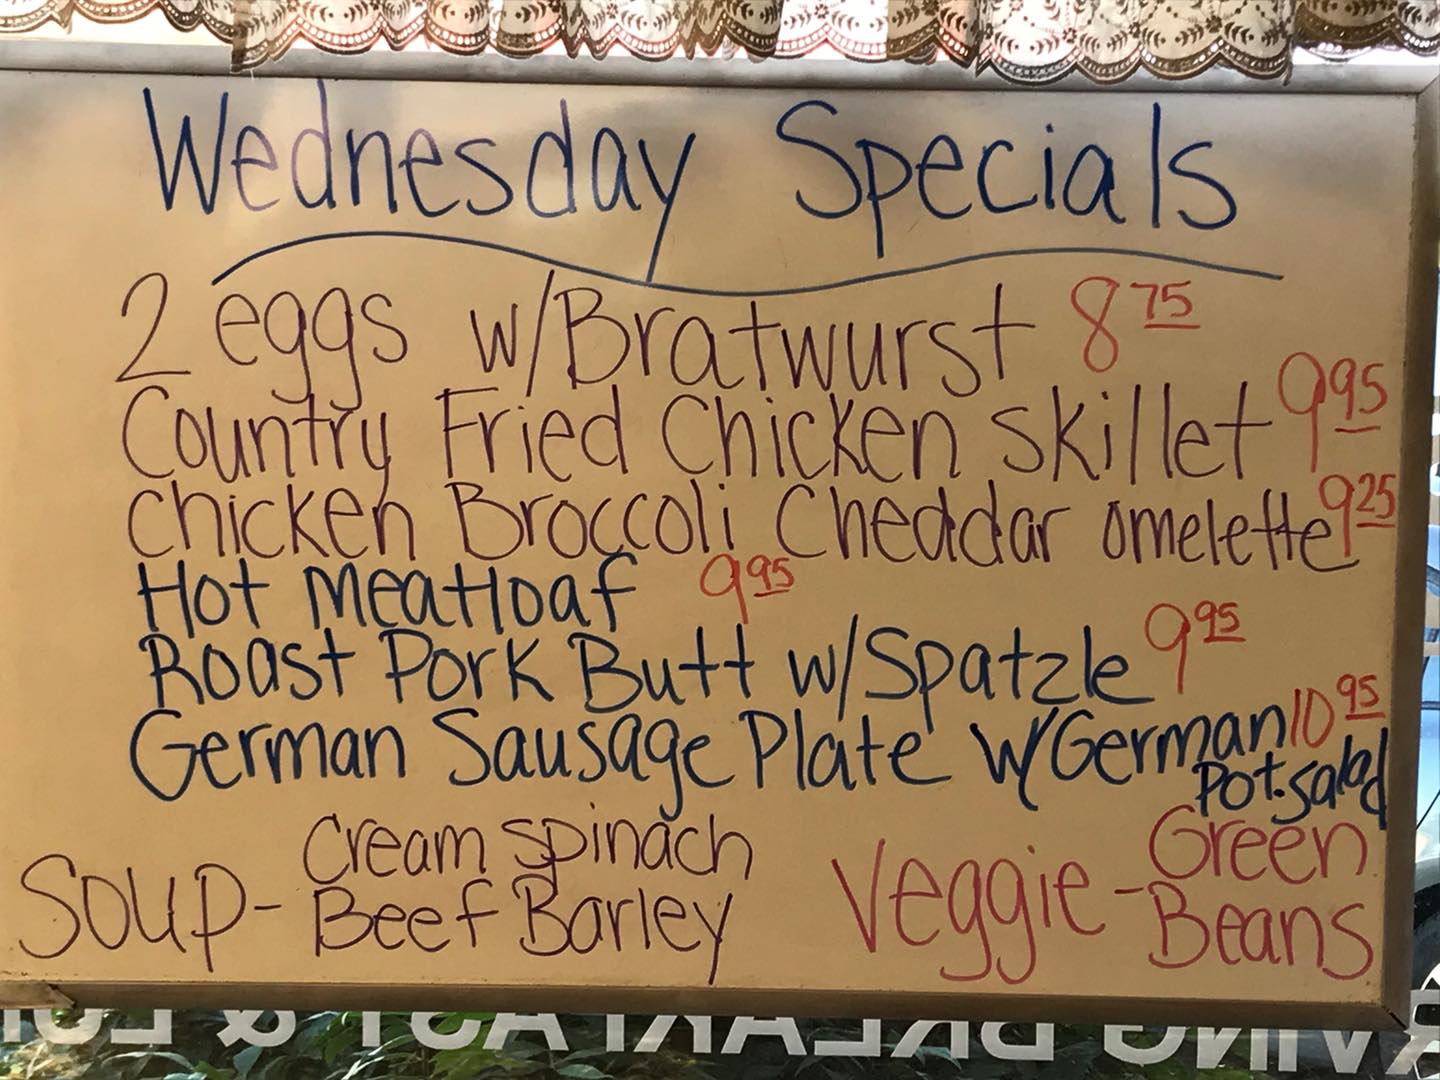 Wednesday Specials
2 eggs w/Bratwurst 8 75
Country Fried Chicken skillet 9 95
chicken Broccoli Cheddar omelette 9 25
Hot Meatloaf 9 95
Roast Pork Butt w/Spatzle 9 95
German Sausage Plate w/German 10 95
Pot. Salad
Soup - Cream spinach
Beef Barley
Veggie - Green
Beans
RVING BREAKFAST & LU